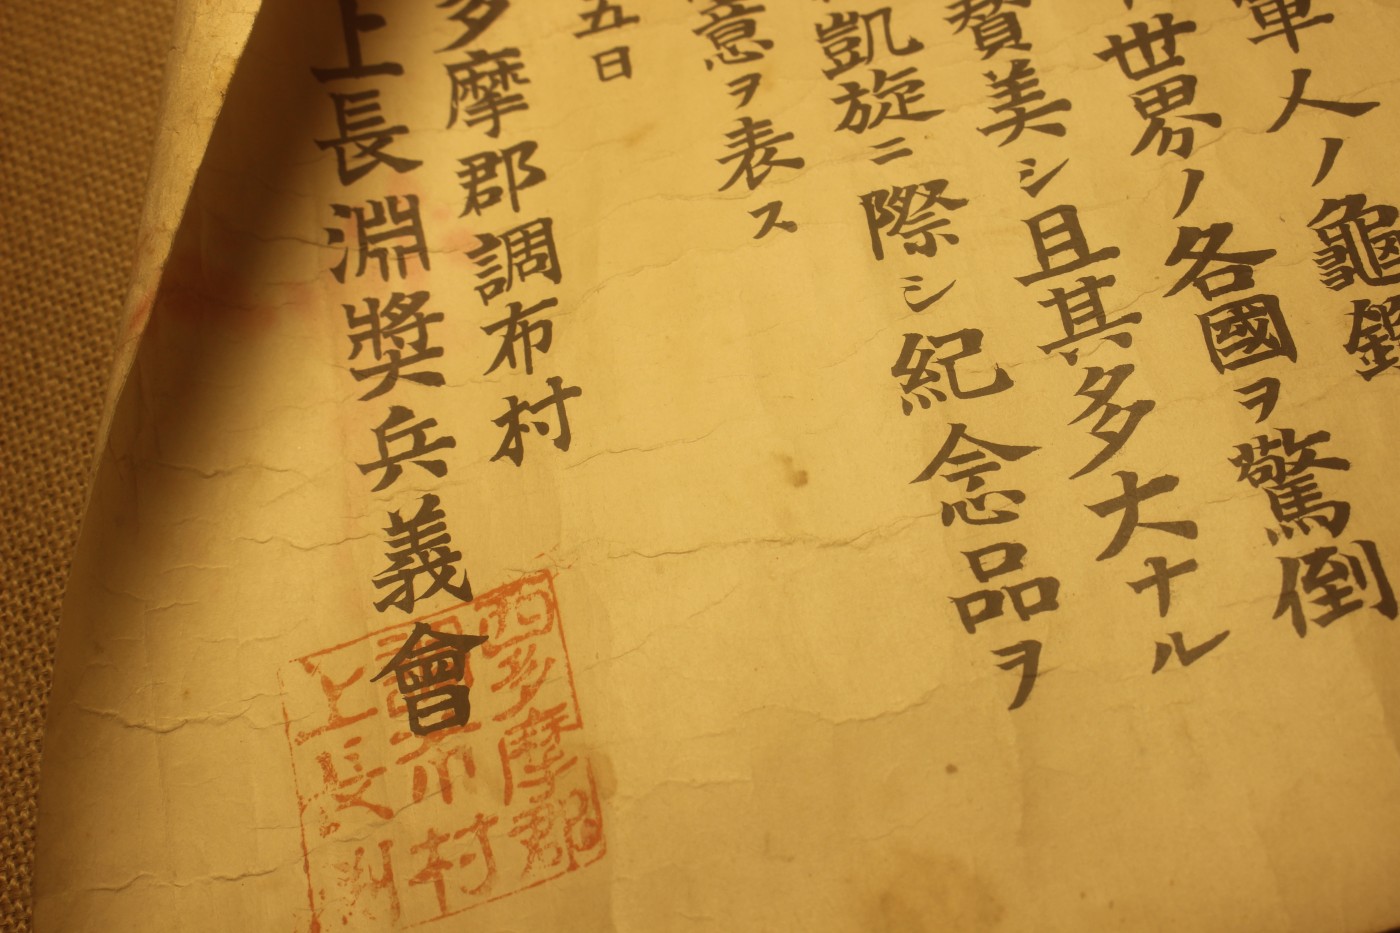 軍人ノ龜鑑
世界ノ各國ヲ驚倒
賛美シ且其多大ナル
凱旋ニ際シ紀念品ヲ
意ヲ表ス
五日
多摩郡調布村
上長淵奬兵義會
西多摩郡
調布村
上長淵